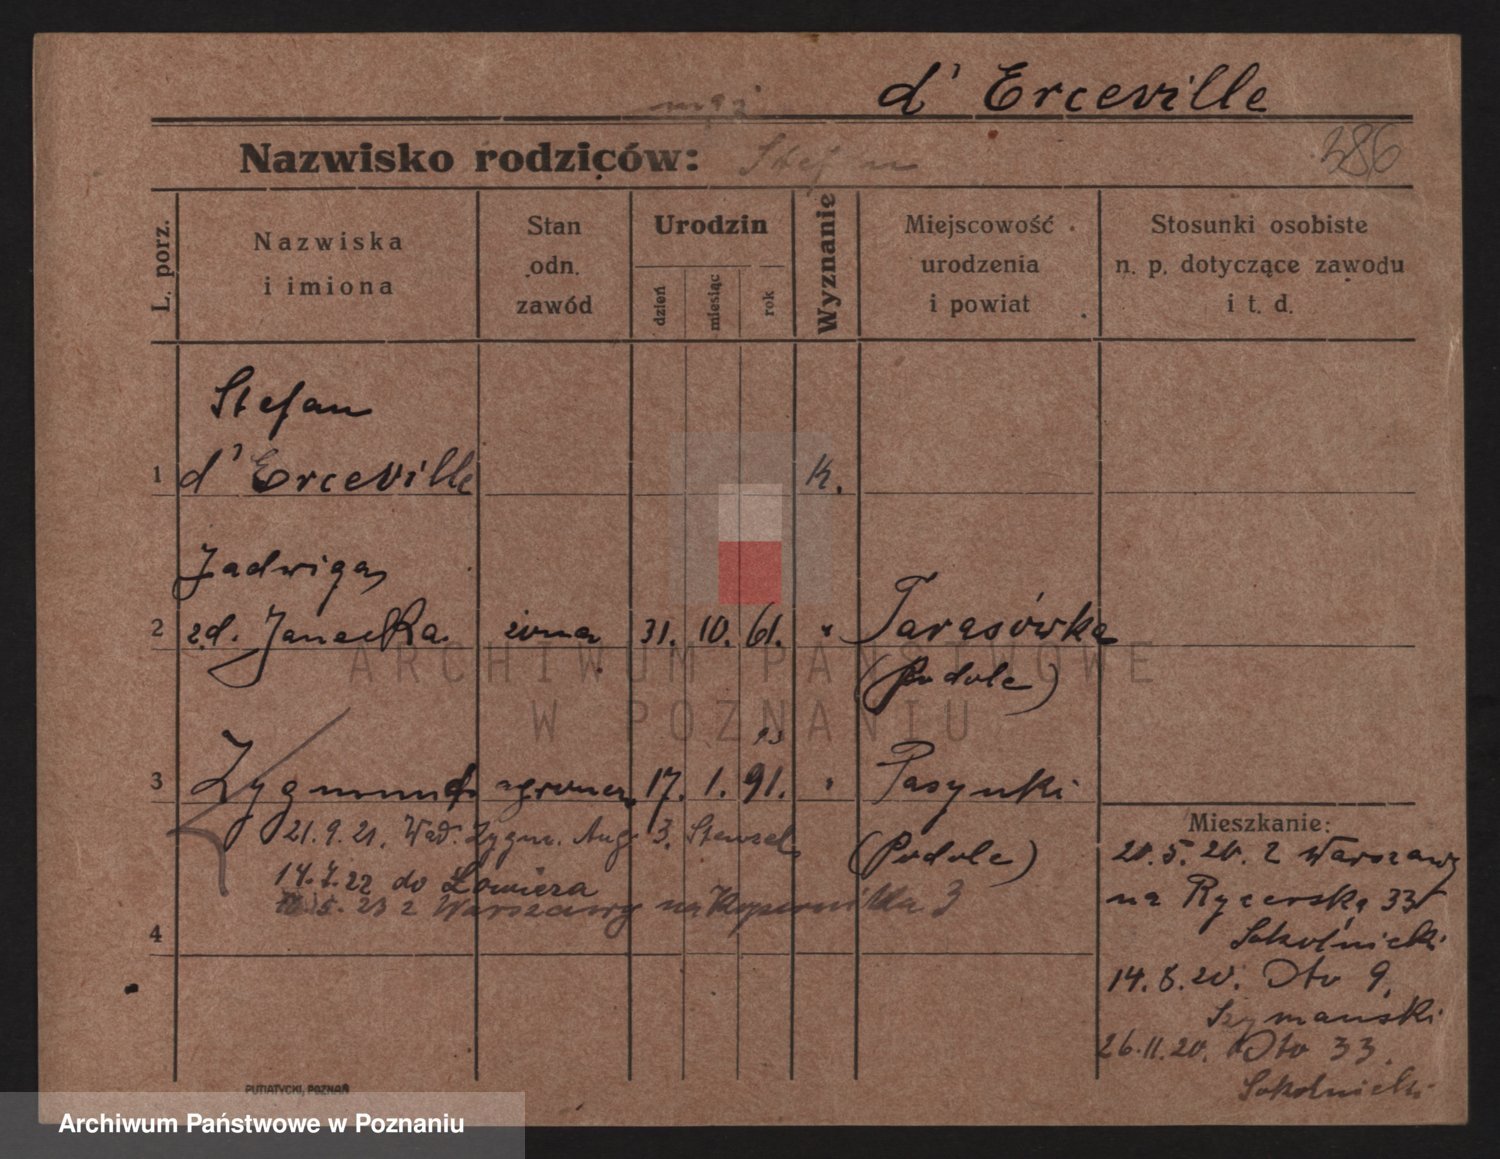 d' Erceville
mąż
Nazwisko rodziców: Stefan
386
L. porz.
Nazwiska
i imiona
Stan
odn.
zawód
Urodzin
dzień
miesiąc
rok
Wyznanie
Miejscowość
urodzenia
i powiat
Stosunki osobiste
n. p. dotyczące zawodu
i t. d.
Stefan
1 d' Erceville K.
Jadwiga
2 zd. Janacka żona 31. 10. 61. " Tarasówka
(Podole)
93
3 Zygmund agronom 17. 1. 91. " Pasynki
(Podole)
21.9.21. Zygm. Aug. 3.
14.7.22 do
5. 23 z Warszawy na Kopernika 3
4
Mieszkanie:
20.5.20. z Warszawy
na Rycerską 33
Sokolnicki
14.8.20. Dto 9.
Szymański
26.11.20. Dto 33.
Sokolnicki
PUTIATYCKI, POZNAŃ
ARCHIWUM PAŃSTWOWE
W POZNANIU
Archiwum Państwowe w Poznaniu